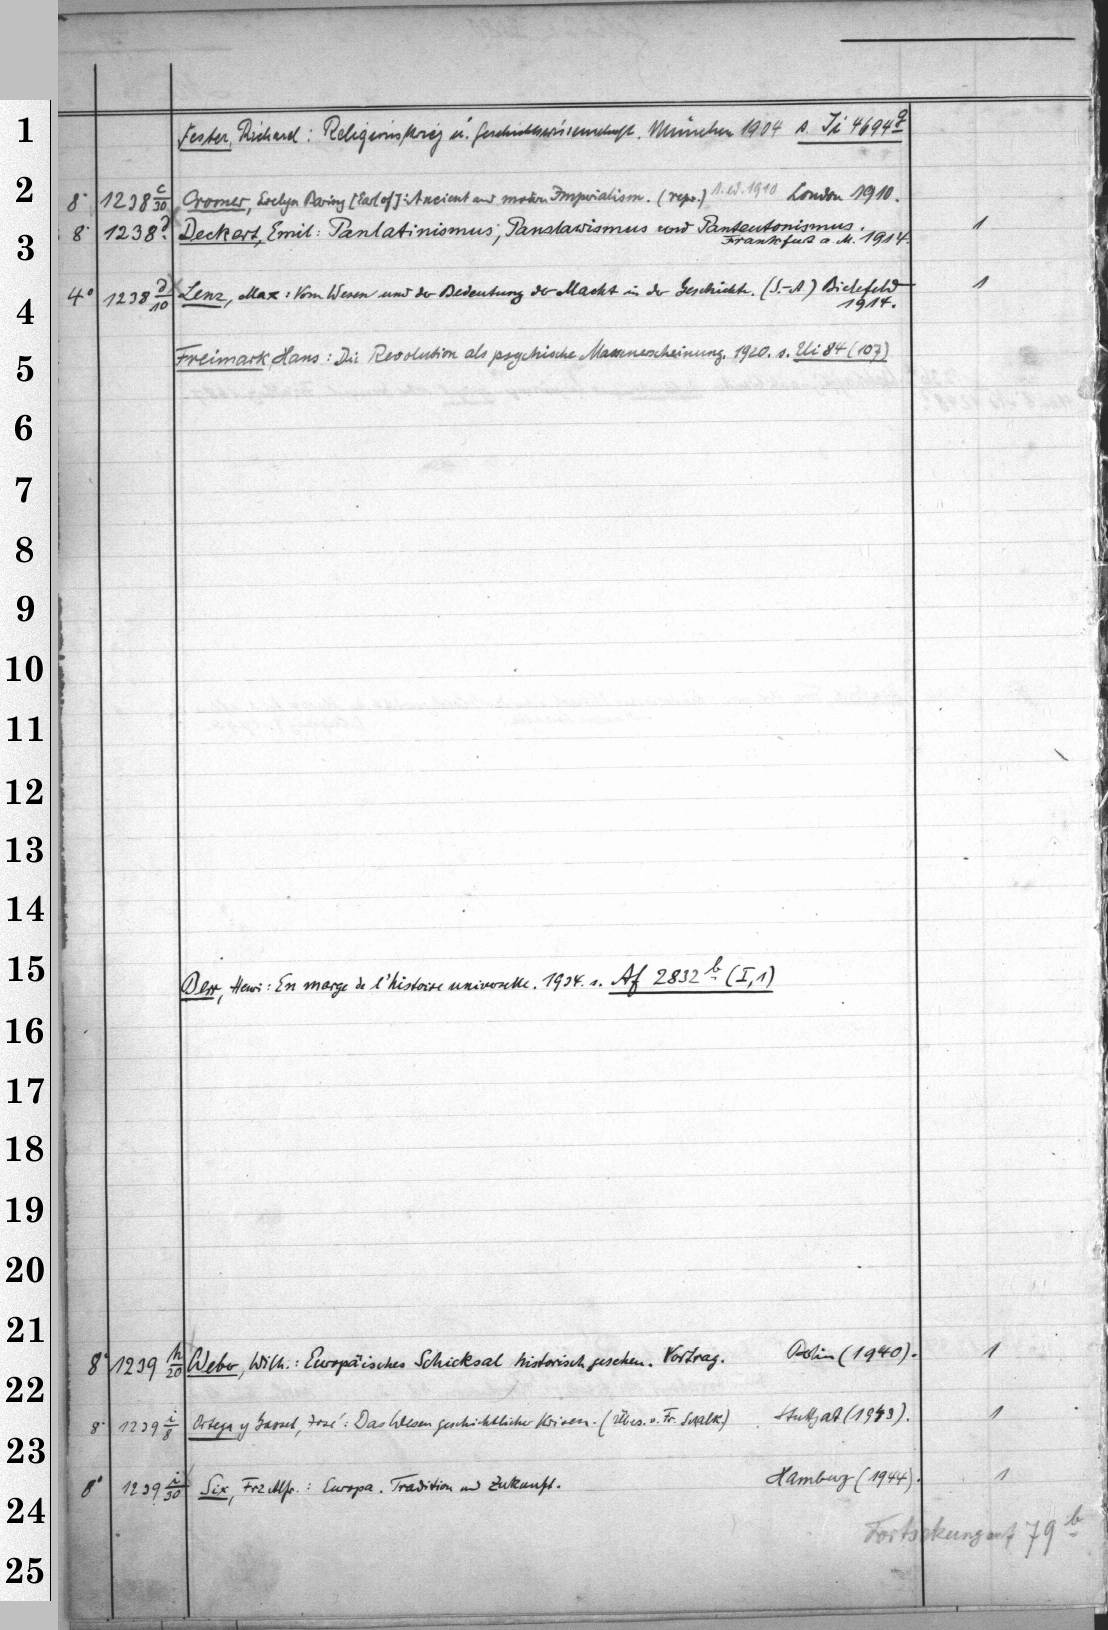 1
Fester, Richard: Religionskrieg u. Geschichtswissenschaft. München 1904 s. Ti 4694 g
2
8° 1238 c/30 Cromer, Evelyn Baring [Earl of]: Ancient and modern Imperialism. (repr.) 1. ed. 1910 London 1910.
8° 1238 d Deckert, Emil: Panlatinismus, Panslawismus und Panteutonismus. 1
3
Frankfurt a. M. 1914.
4° 1238 d/10 Lenz, Max: Vom Wesen und der Bedeutung der Macht in der Geschichte. (S.-A.) Bielefeld 1
4
1914.
Freimark, Hans: Die Revolution als psychische Massenerscheinung. 1920. s. Eli 84 (107)
5
6
7
8
9
10
11
12
13
14
15
Berr, Henri: En marge de l'histoire universelle. 1934. s. Af 2832 b (I,1)
16
17
18
19
20
21
8° 1239 h/20 Weber, Wilh.: Europäisches Schicksal historisch gesehen. Vortrag. Berlin (1940). 1
22
8° 1239 i/8 Ortega y Gasset, José: Das Wesen geschichtlicher Krisen. (Übers. v. Fr. Schalk) Stuttgart (1943). 1
23
8° 1239 i/30 Six, Frz Alfr.: Europa. Tradition und Zukunft. Hamburg (1944). 1
24
Fortsetzung auf 79 b
25